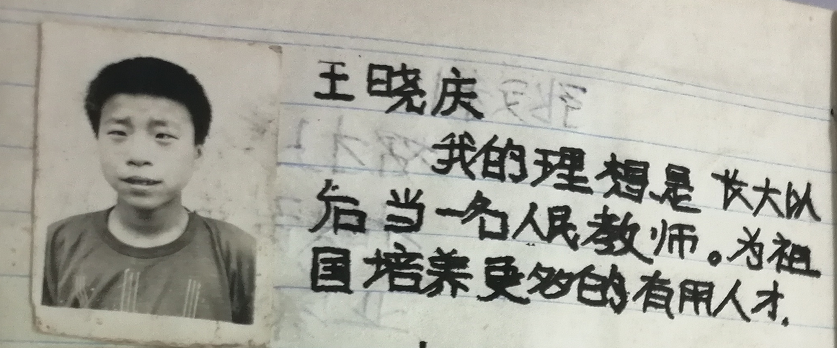 王晓庆
我的理想是长大以
后当一名人民教师。为祖
国培养更多的有用人才.